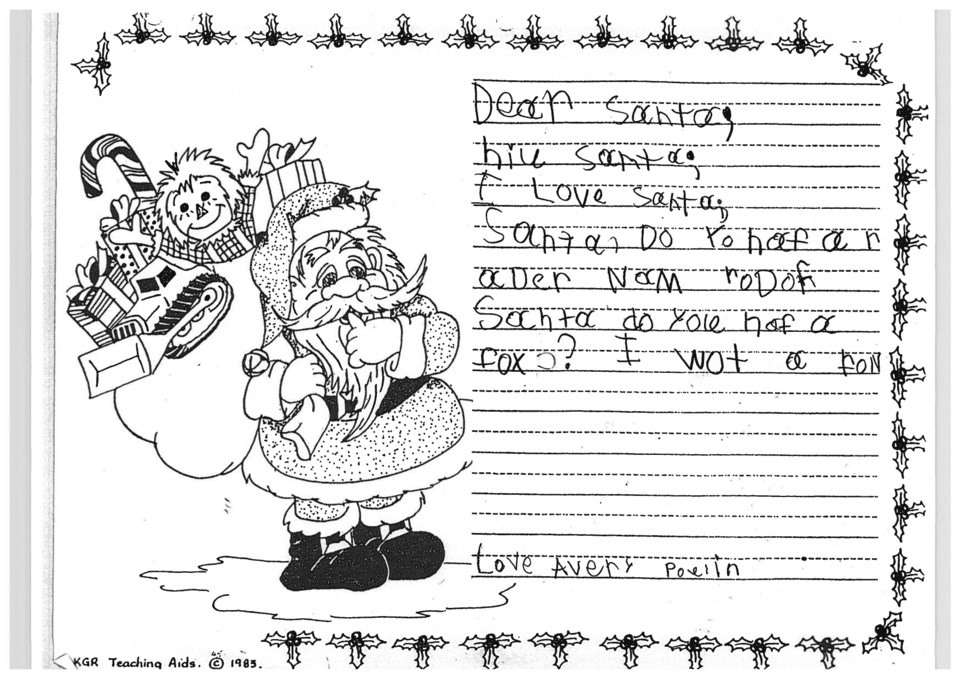 Dear Santa;
hiu Santa;
I Love Santa;
Santa, DO Yo haf a r
aDer Nam roDof
Santa do you haf a
fox? I wot a fon
Love Avery
KGR Teaching Aids. © 1985.